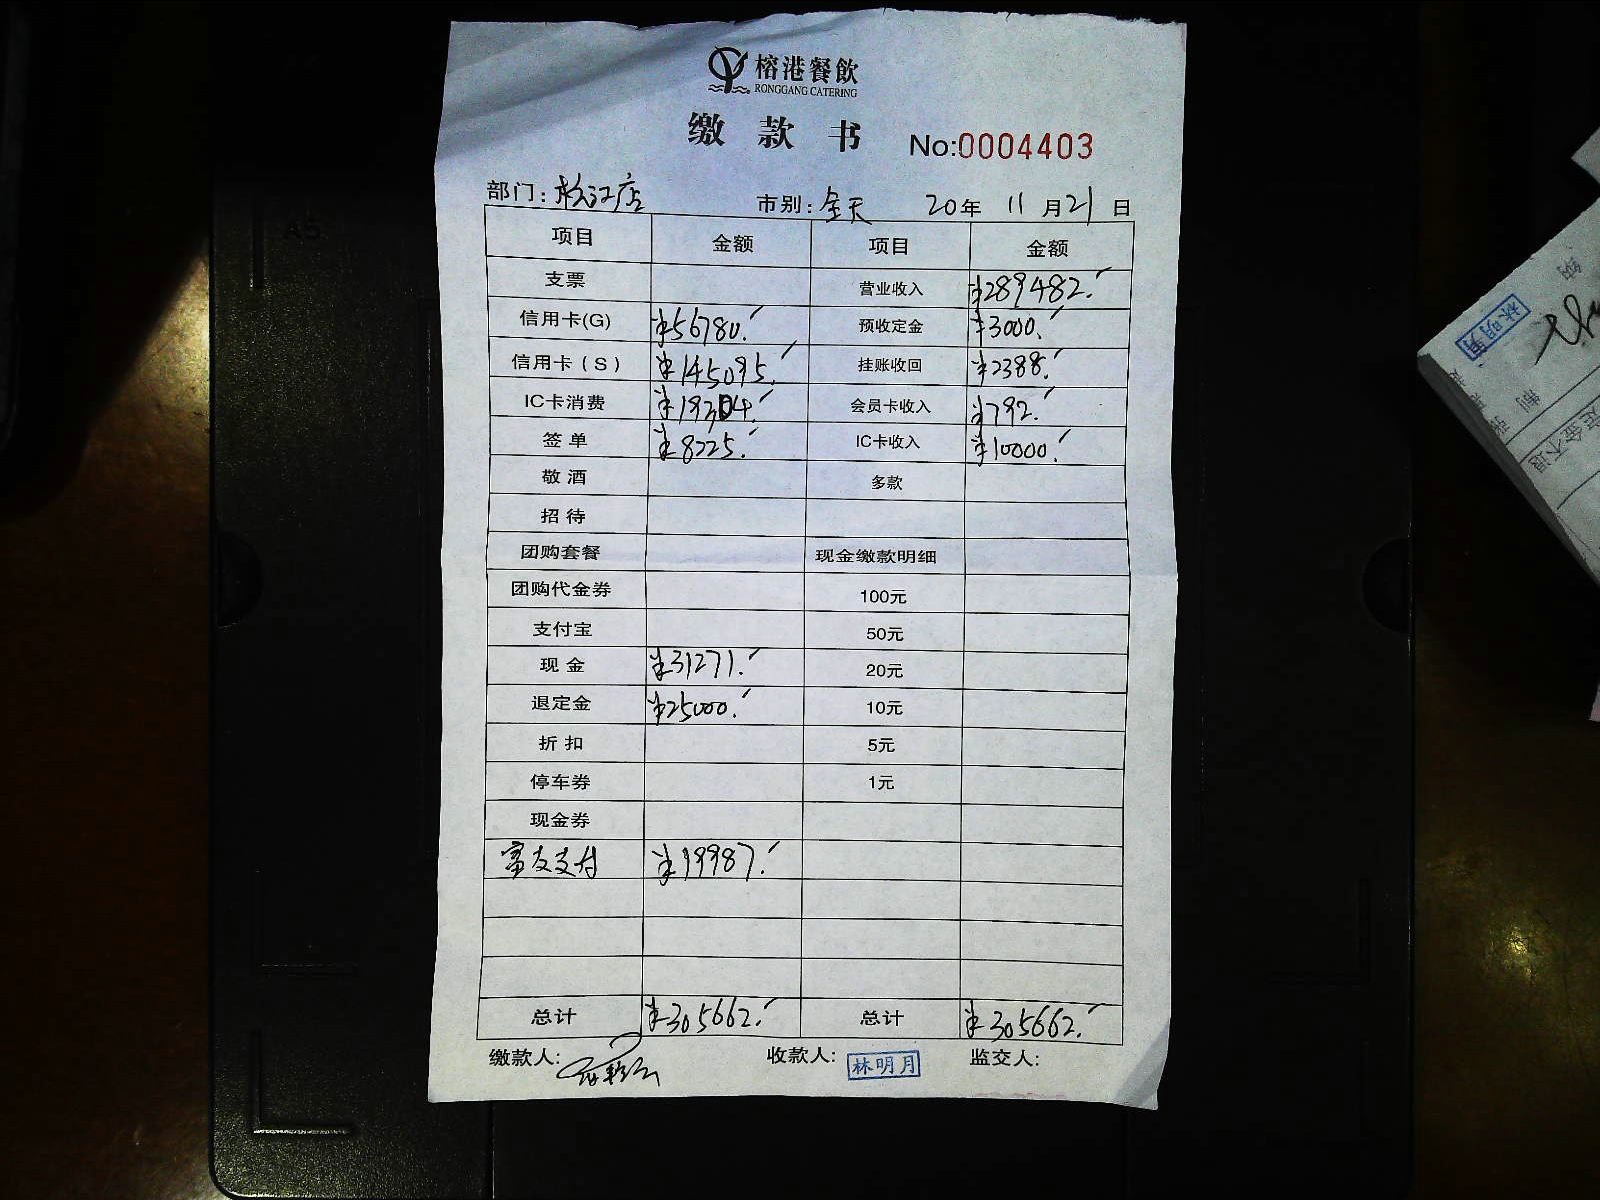 榕港餐飲
RONGGANG CATERING
缴款书 No:0004403
部门: 松江店 市别: 全天 20年 11月21日
项目 金额 项目 金额
支票 营业收入 ¥289482.
信用卡(G) ¥56780. 预收定金 ¥3000.
信用卡(S) ¥145095. 挂账收回 ¥2388.
IC卡消费 ¥19304. 会员卡收入 ¥792.
签单 ¥8225. IC卡收入 ¥10000.
敬酒 多款
招待
团购套餐 现金缴款明细
团购代金券 100元
支付宝 50元
现金 ¥31271. 20元
退定金 ¥25000. 10元
折扣 5元
停车券 1元
现金券
富友支付 ¥19987.
总计 ¥305662. 总计 ¥305662.
缴款人: 收款人: 林明月 监交人: